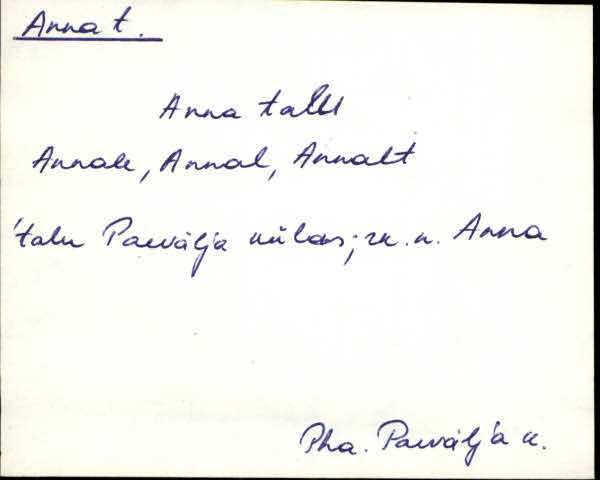 Anna t.
Anna talu
Annale, Annal, Annalt
'talu Paevälja külas; rk. n. Anna
Pha. Paevälja k.